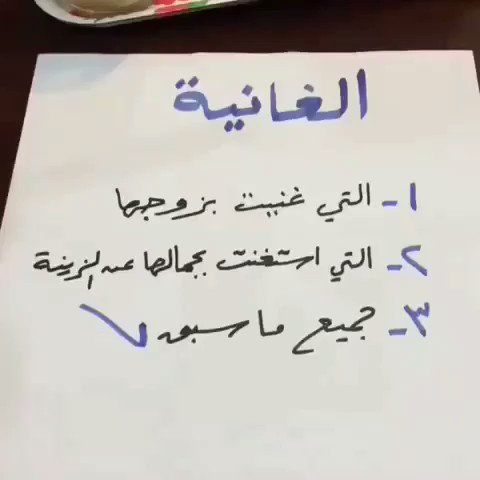 الغانية
١- التي غنيت بزوجها
٢- التي استغنت بجمالها عن الزينة
٣- جميع ما سبق